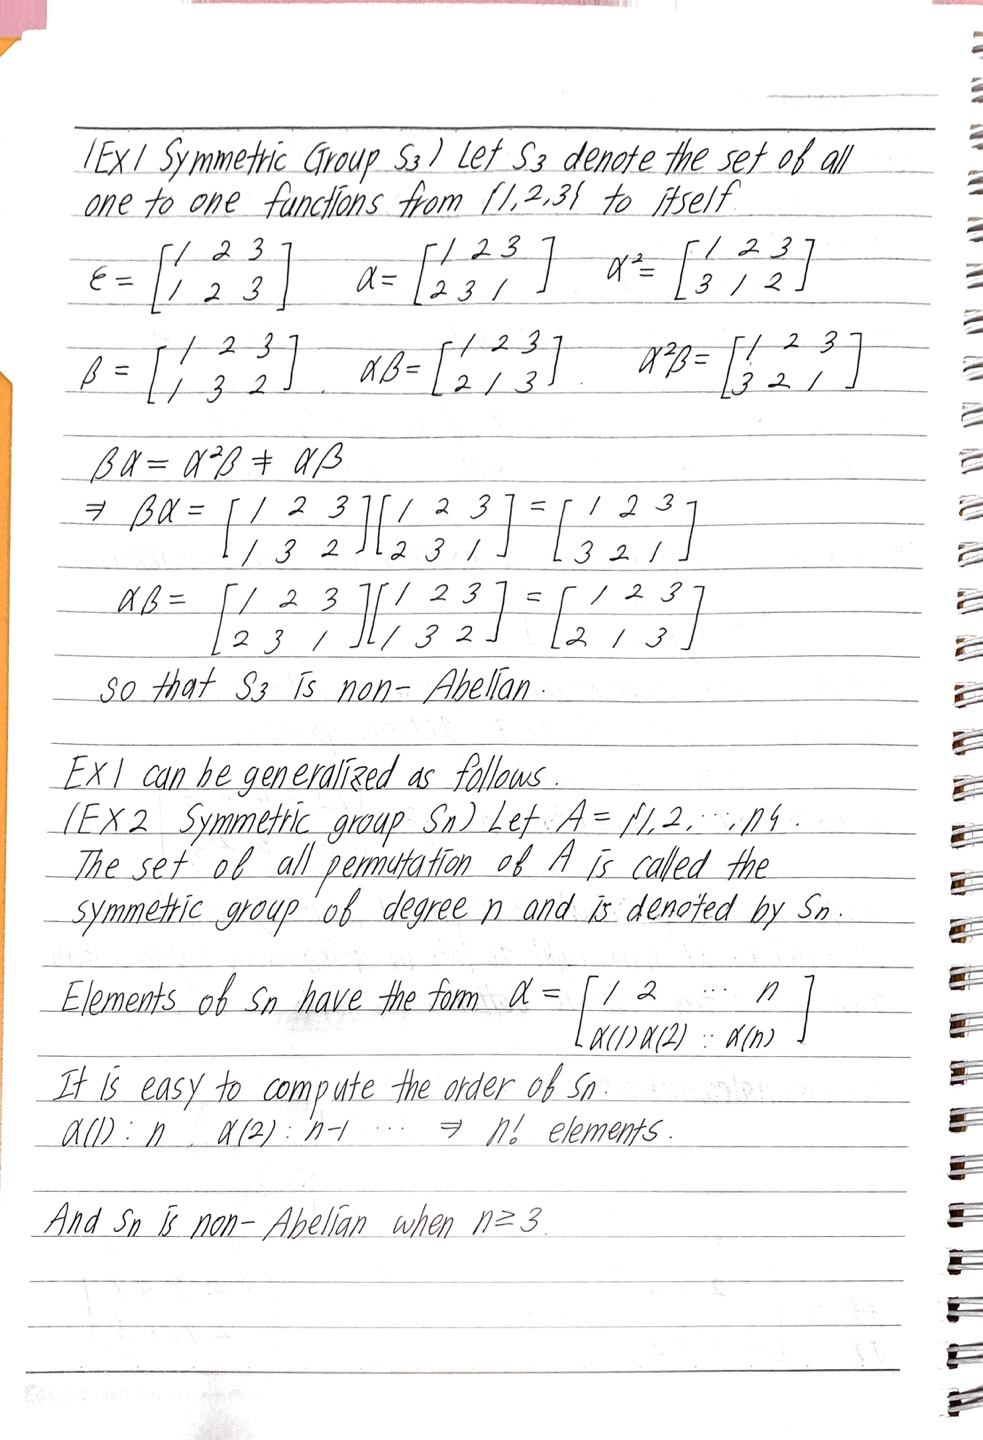 (EX1 Symmetric Group S₃) Let S₃ denote the set of all
one to one functions from {1,2,3} to itself.
ε = [1 2 3 / 1 2 3] α = [1 2 3 / 2 3 1] α² = [1 2 3 / 3 1 2]
β = [1 2 3 / 1 3 2], αβ = [1 2 3 / 2 1 3], α²β = [1 2 3 / 3 2 1]
βα = α²β ≠ αβ
⇒ βα = [1 2 3 / 1 3 2][1 2 3 / 2 3 1] = [1 2 3 / 3 2 1]
αβ = [1 2 3 / 2 3 1][1 2 3 / 1 3 2] = [1 2 3 / 2 1 3]
so that S₃ is non-Abelian.
EX1 can be generalized as follows.
(EX2 Symmetric group Sn) Let A = {1, 2, ⋯, n}.
The set of all permutation of A is called the
symmetric group of degree n and is denoted by Sn.
Elements of Sn have the form α = [1 2 ⋯ n / α(1) α(2) ⋯ α(n)]
It is easy to compute the order of Sn.
α(1) : n, α(2) : n-1 ⋯ ⇒ n! elements.
And Sn is non-Abelian when n ≥ 3.